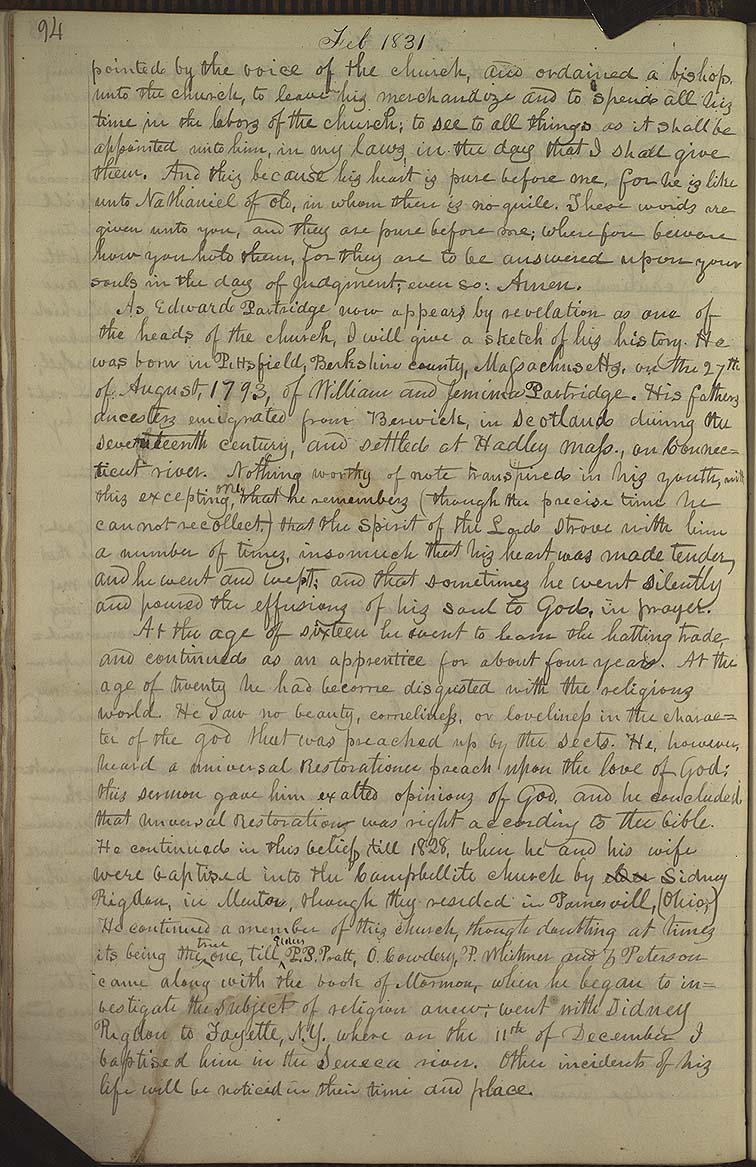 94
Feb 1831
pointed by the voice of the church, and ordained a bishop,
unto the church, to leave his merchandize and to spend all his
time in the labors of the church; to see to all things as it shall be
appointed unto him, in my laws, in the day that I shall give
them. And this because his heart is pure before me, for he is like
unto Nathaniel of old, in whom there is no guile. These words are
given unto you, and they are pure before me; wherefore beware
how you hold them, for they are to be answered upon your
souls in the day of judgment; even so: Amen.
As Edward Partridge now appears by revelation as one of
the heads of the church, I will give a sketch of his history. He
was born in Pittsfield, Berkshire county, Massachusetts, on the 27th
of August, 1793, of William and Jemima Partridge. His fathers
ancesters emigrated from Berwick, in Scotland during the
seventeenth century, and settled at Hadley Mass., on Connec=
ticut river. Nothing worthy of note transpired in his youth, with
this excepting one, that he remembers (though the precise time he
cannot recollect.) that the Spirit of the Lord strove with him
a number of times, insomuch that his heart was made tender,
and he went and wept; and that sometimes he went silently
and poured the effusions of his soul to God, in prayer.
At the age of sixteen he went to learn the hatting trade
and continued as an apprentice for about four years. At the
age of twenty he had become disgusted with the religious
world. He saw no beauty, comeliness, or loveliness in the charac=
ter of the god that was preached up by the sects. He, however,
heard a universal Restorationer preach upon the love of God;
this sermon gave him exalted opinions of God, and he concluded
that universal Restoration was right according to the bible.
He continued in this belief till 1828, when he and his wife
were baptised into the Campbellite church by Sidney
Rigdon, in Mentor, though they resided in Painesvill, (Ohio;)
He continued a member of this church, though doubting at times
its being the true one, till Elders P. P. Pratt, O. Cowdery, P. Whitmer and Z Peterson
came along with the book of Mormon, when he began to in=
vestigate the subject of religion anew; went with Sidney
Rigdon to Fayette, N.Y. where on the 11th of December I
baptised him in the Seneca river. Other incidents of his
life will be noticed in their time and place.